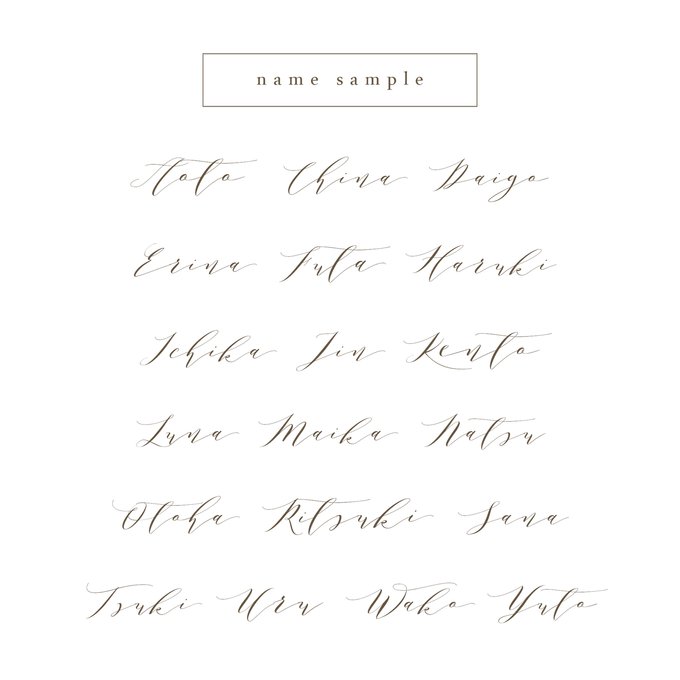 name sample
Aoto China Daigo
Erina Futa Haruki
Ichika Jin Kento
Luna Maika Natsu
Otoha Ritsuki Sana
Tsuki Uru Wako Yuto